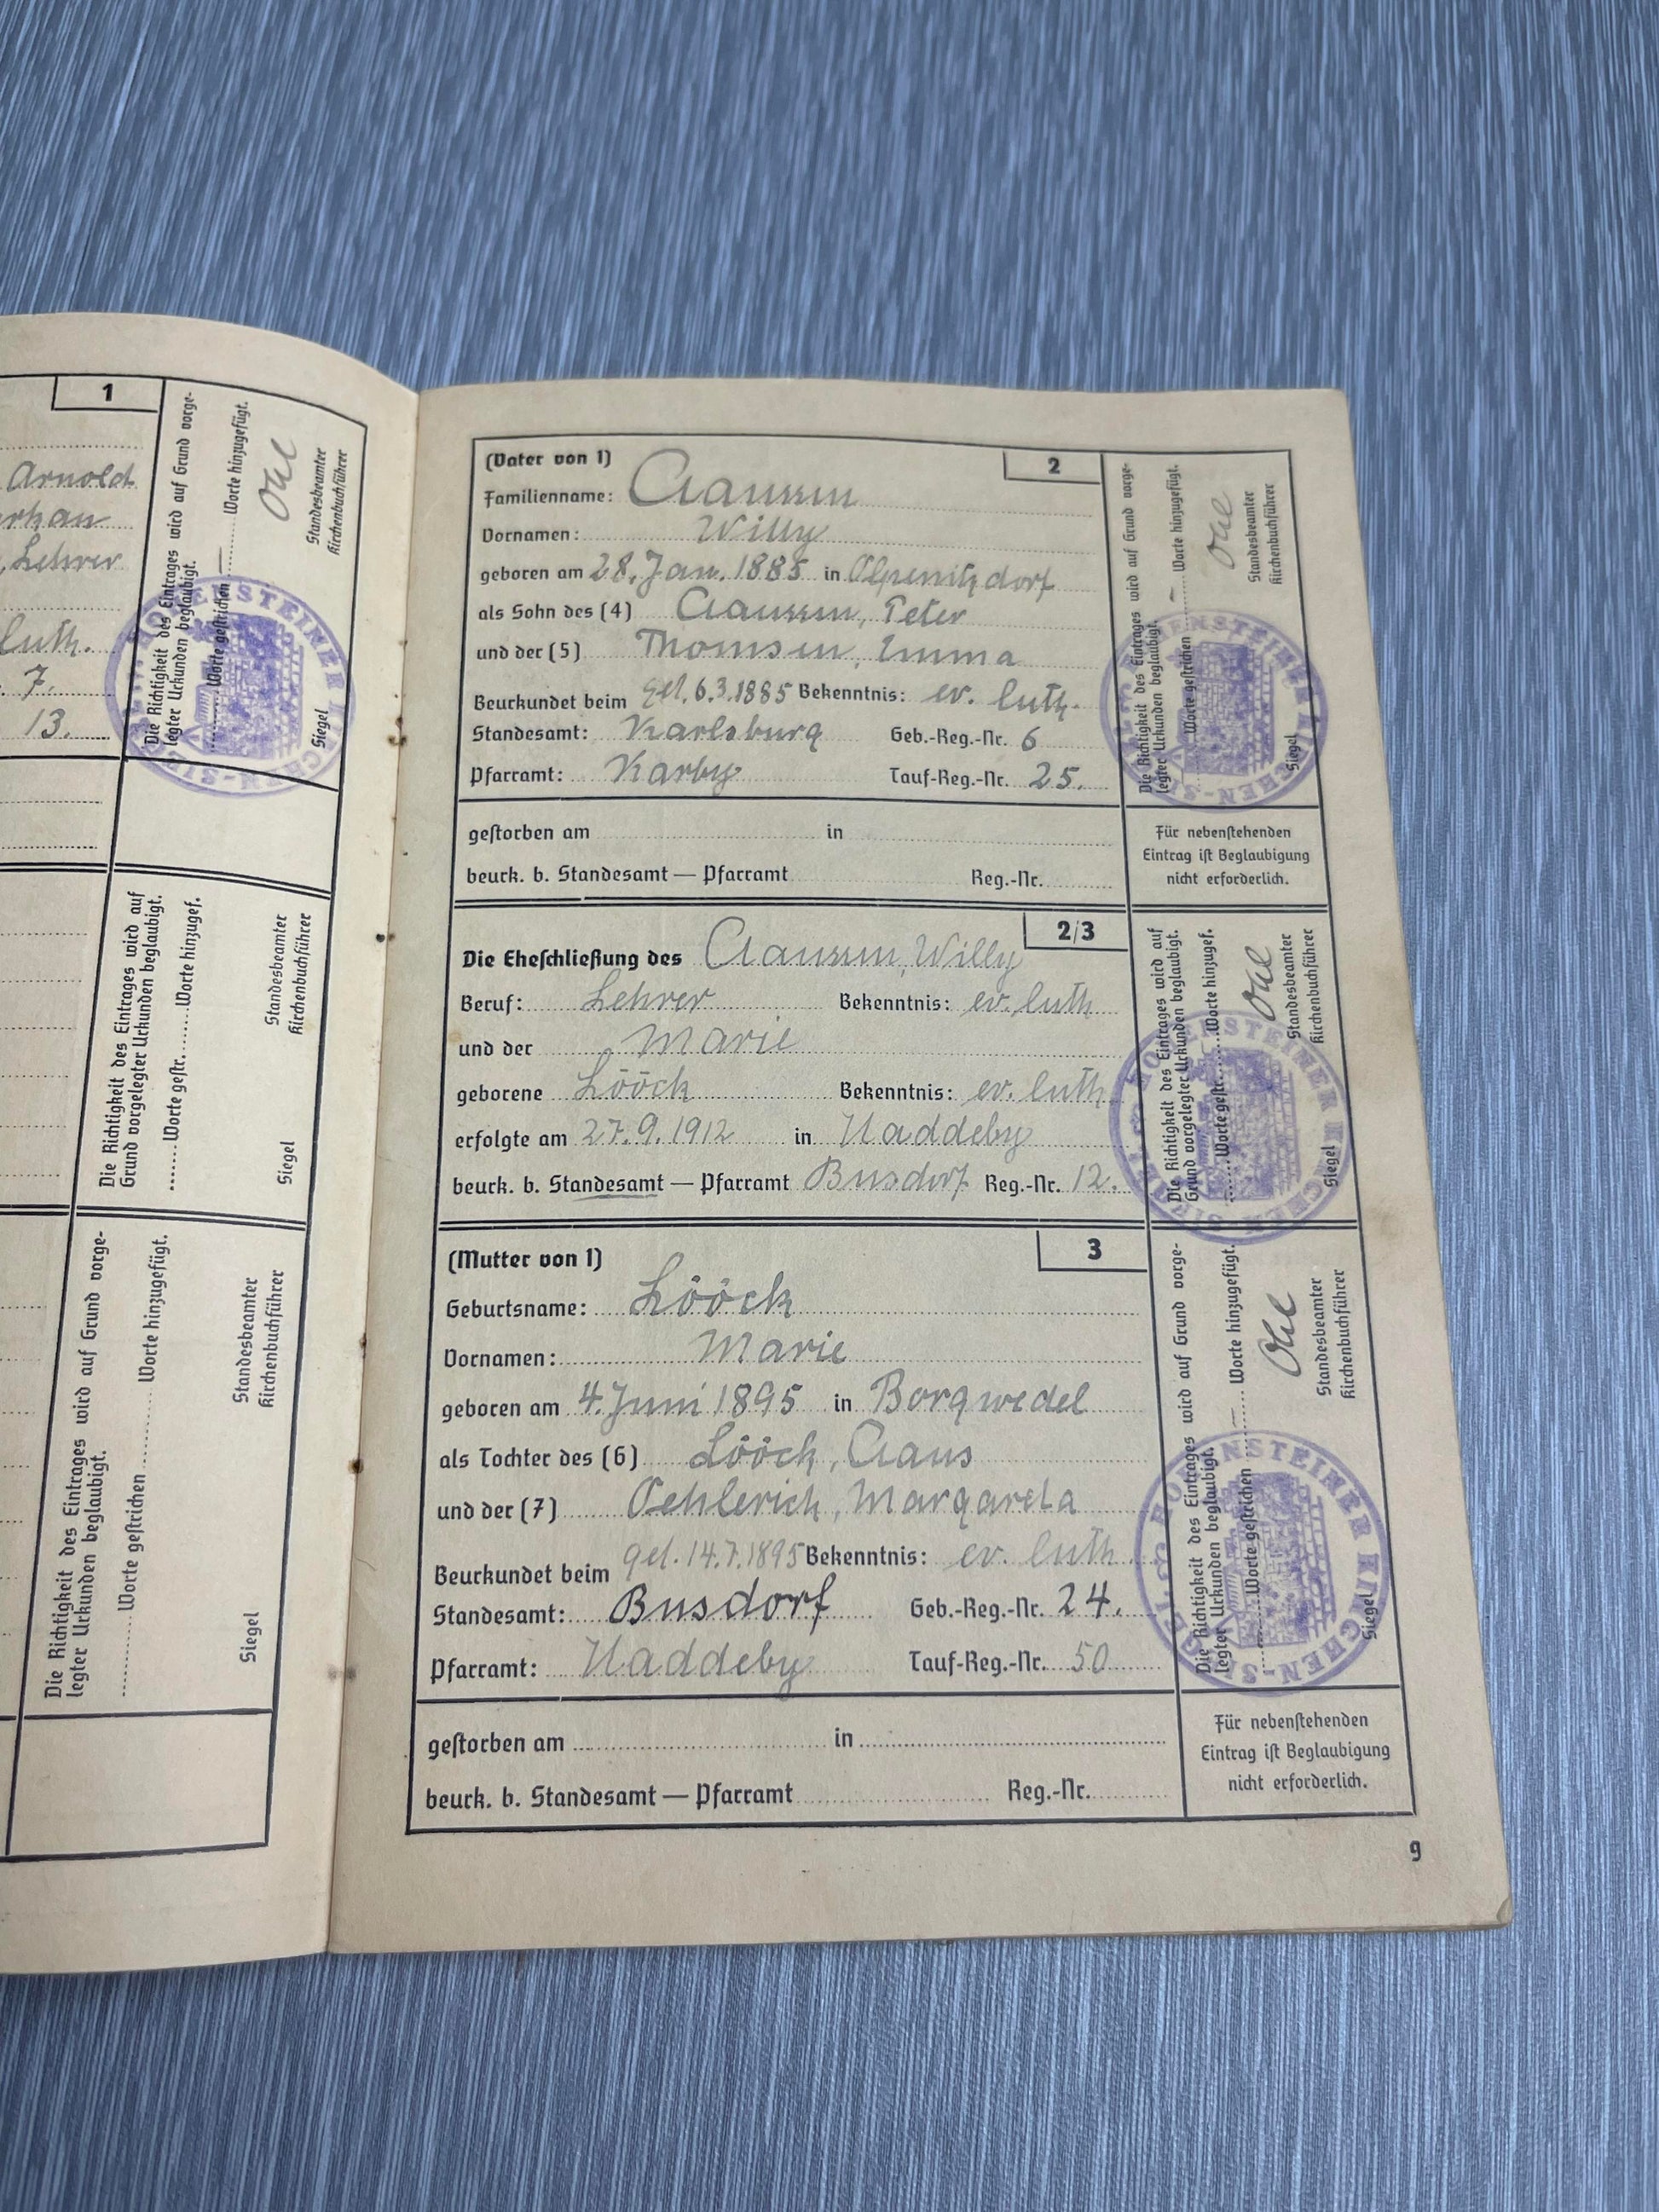 1
Arnold
Lehrer
luth.
7.
13.
Die Richtigkeit des Eintrages wird auf Grund vorge-
legter Urkunden beglaubigt.
Worte gestrichen — Worte hinzugefügt.
Ohl
Standesbeamter
Kirchenbuchführer
Siegel
Die Richtigkeit des Eintrages wird auf
Grund vorgelegter Urkunden beglaubigt.
Worte gestr. Worte hinzugef.
Standesbeamter
Kirchenbuchführer
Siegel
Die Richtigkeit des Eintrages wird auf Grund vorge-
legter Urkunden beglaubigt.
Worte gestrichen Worte hinzugefügt.
Standesbeamter
Kirchenbuchführer
Siegel
(Vater von 1) 2
Familienname: Claussen
Vornamen: Willy
geboren am 28. Jan. 1885 in Olpenitzdorf
als Sohn des (4) Claussen, Peter
und der (5) Thomsen, Emma
Beurkundet beim get. 6.3.1885 Bekenntnis: ev. luth.
Standesamt: Karlsburg Geb.-Reg.-Nr. 6
Pfarramt: Karby Tauf-Reg.-Nr. 25.
Die Richtigkeit des Eintrages wird auf Grund vorge-
legter Urkunden beglaubigt.
Worte gestrichen — Worte hinzugefügt.
Ohl
Standesbeamter
Kirchenbuchführer
Siegel
gestorben am in
beurk. b. Standesamt — Pfarramt Reg.-Nr.
Für nebenstehenden
Eintrag ist Beglaubigung
nicht erforderlich.
2/3
Die Eheschließung des Claussen, Willy
Beruf: Lehrer Bekenntnis: ev. luth
und der Marie
geborene Lööck Bekenntnis: ev. luth.
erfolgte am 27.9.1912 in Haddeby
beurk. b. Standesamt — Pfarramt Busdorf Reg.-Nr. 12.
Die Richtigkeit des Eintrages wird auf
Grund vorgelegter Urkunden beglaubigt.
Worte gestr. Worte hinzugef.
Ohl
Standesbeamter
Kirchenbuchführer
Siegel
(Mutter von 1) 3
Geburtsname: Lööck
Vornamen: Marie
geboren am 4. Juni 1895 in Borgwedel
als Tochter des (6) Lööck, Claus
und der (7) Oehlerich, Margareta
Beurkundet beim get. 14.7.1895 Bekenntnis: ev. luth.
Standesamt: Busdorf Geb.-Reg.-Nr. 24.
Pfarramt: Haddeby Tauf-Reg.-Nr. 50
Die Richtigkeit des Eintrages wird auf Grund vorge-
legter Urkunden beglaubigt.
Worte gestrichen — Worte hinzugefügt.
Ohl
Standesbeamter
Kirchenbuchführer
Siegel
gestorben am in
beurk. b. Standesamt — Pfarramt Reg.-Nr.
Für nebenstehenden
Eintrag ist Beglaubigung
nicht erforderlich.
9